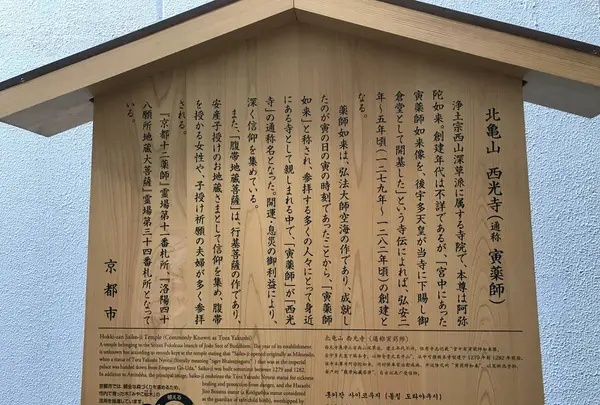 北亀山　西光寺（通称　寅薬師）
浄土宗西山深草派に属する寺院で、本尊は阿弥
陀如来。創建年代は不詳であるが、「宮中にあった
寅薬師如来像を、後宇多天皇が当寺に下賜し御
倉堂として開基した」という寺伝によれば、弘安二
年～五年頃（一二七九年～一二八二年頃）の創建と
なる。
薬師如来は、弘法大師空海の作であり、成就し
たのが寅の日の寅の時刻であったことから、「寅薬師
如来」と称され、参拝する多くの人々にとって身近
にある寺として親しまれる中で、「寅薬師」が「西光
寺」の通称名となった。開運・息災の御利益により、
深く信仰を集めている。
また、「腹帯地蔵菩薩」は、行基菩薩の作であり、
安産子授けのお地蔵さまとして信仰を集め、腹帯
を授かる女性や、子授け祈願の夫婦が多く参拝
される。
『京都十二薬師』霊場第十一番札所、『洛陽四十
八願所地蔵大菩薩』霊場第三十四番札所となって
いる。
京都市
Hokki-san Saiko-ji Temple (Commonly Known as Tora Yakushi)
A temple belonging to the Seizan Fukakusa branch of Jodo Sect of Buddhism. The year of its establishment
is unknown but according to
when a statue of Tora Yakushi Nyorai (literally meaning "tiger Bhaisajyaguru") that was at the imperial
palace was handed down from Emperor Go-Uda. Saiko-ji was built sometime between 1279 and 1282.
In addition to Amitabha, the principal image, Saiko-ji enshrines the Tora Yakushi Nyorai statue for sickness
healing and protection from danger, and the Haraobi
Jizo Bosatsu statue (a Ksitigarbha statue considered
as the guardian of
北龟山 西光寺（通称寅药师）